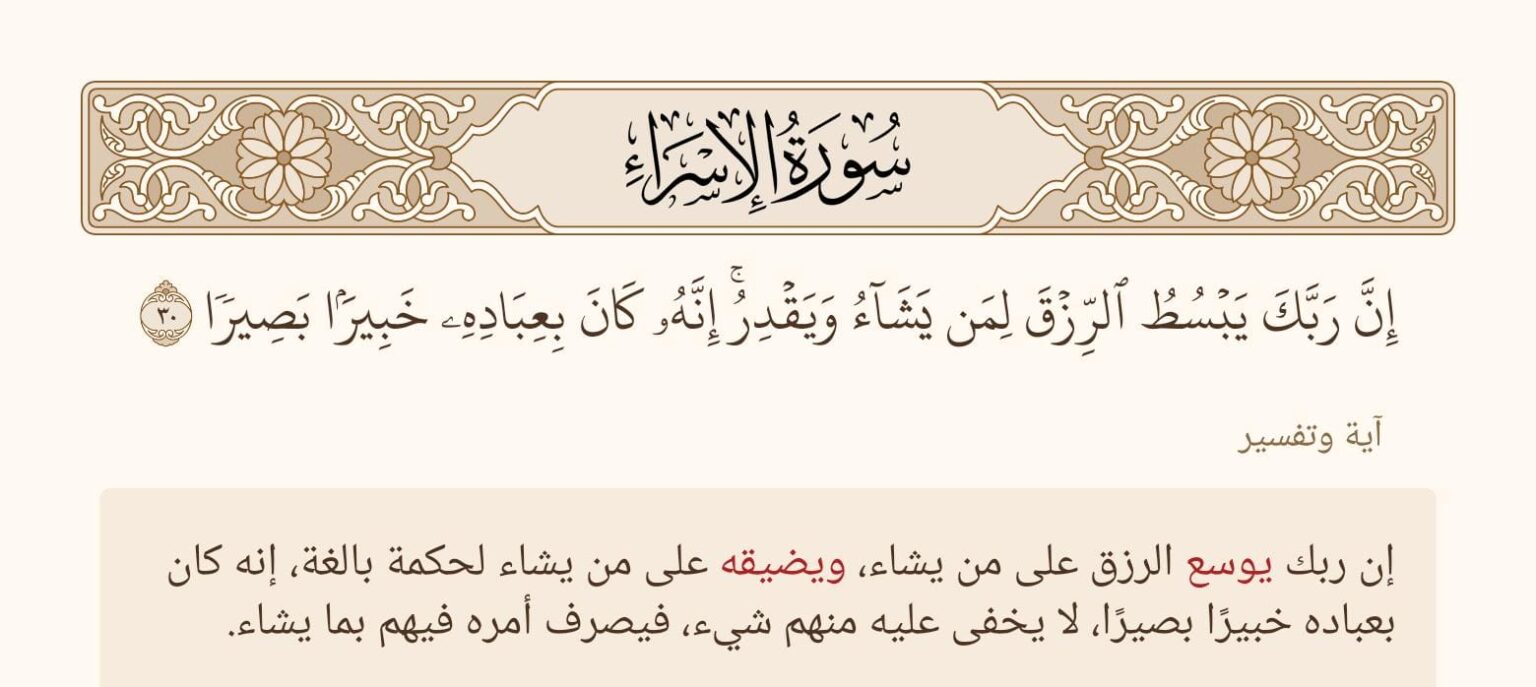 سُورَةُ الإِسْرَاءِ
إِنَّ رَبَّكَ يَبْسُطُ ٱلرِّزْقَ لِمَن يَشَآءُ وَيَقْدِرُۚ إِنَّهُۥ كَانَ بِعِبَادِهِۦ خَبِيرَۢا بَصِيرٗا ٣٠
آية وتفسير
إن ربك يوسع الرزق على من يشاء، ويضيقه على من يشاء لحكمة بالغة، إنه كان
بعباده خبيرًا بصيرًا، لا يخفى عليه منهم شيء، فيصرف أمره فيهم بما يشاء.